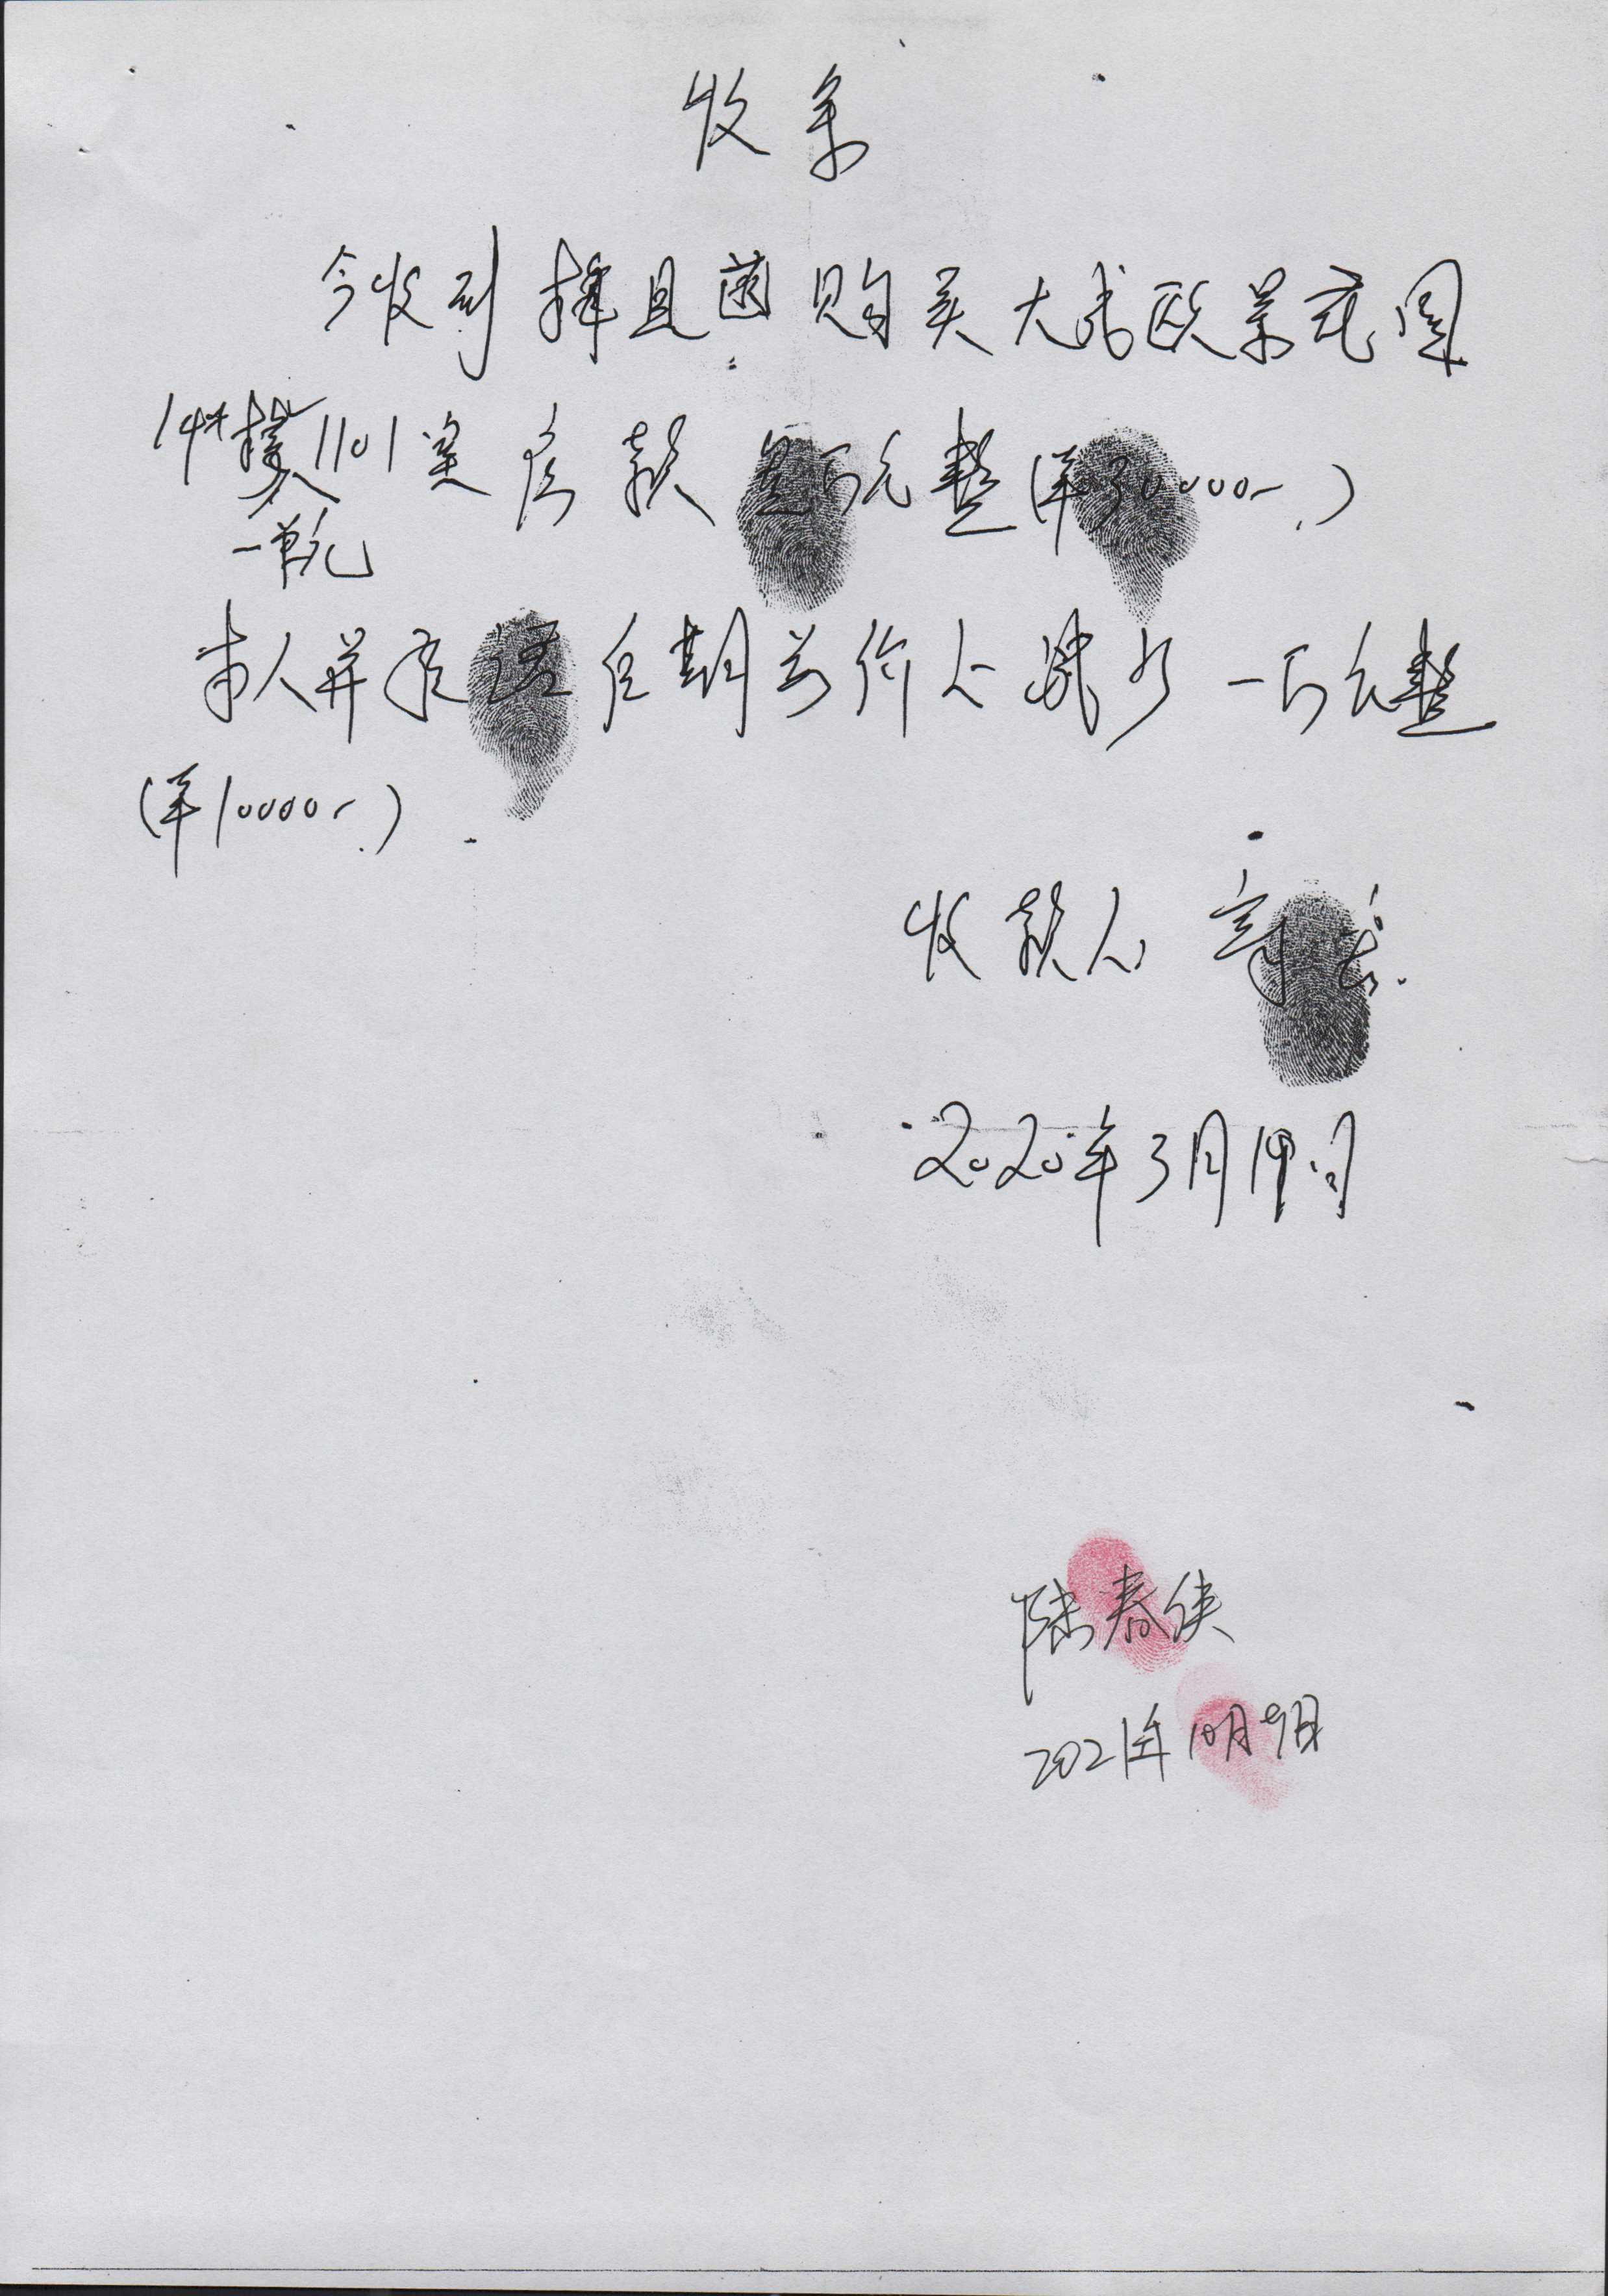 收条
今收到 购买大 欧景花园
14#楼1101室房款叁万元整(¥30000-.)
一单元
本人并承诺后期 价上减少一万元整
(¥10000-.)
收款人
2020年3月19日
陆春侠
2021年10月9日